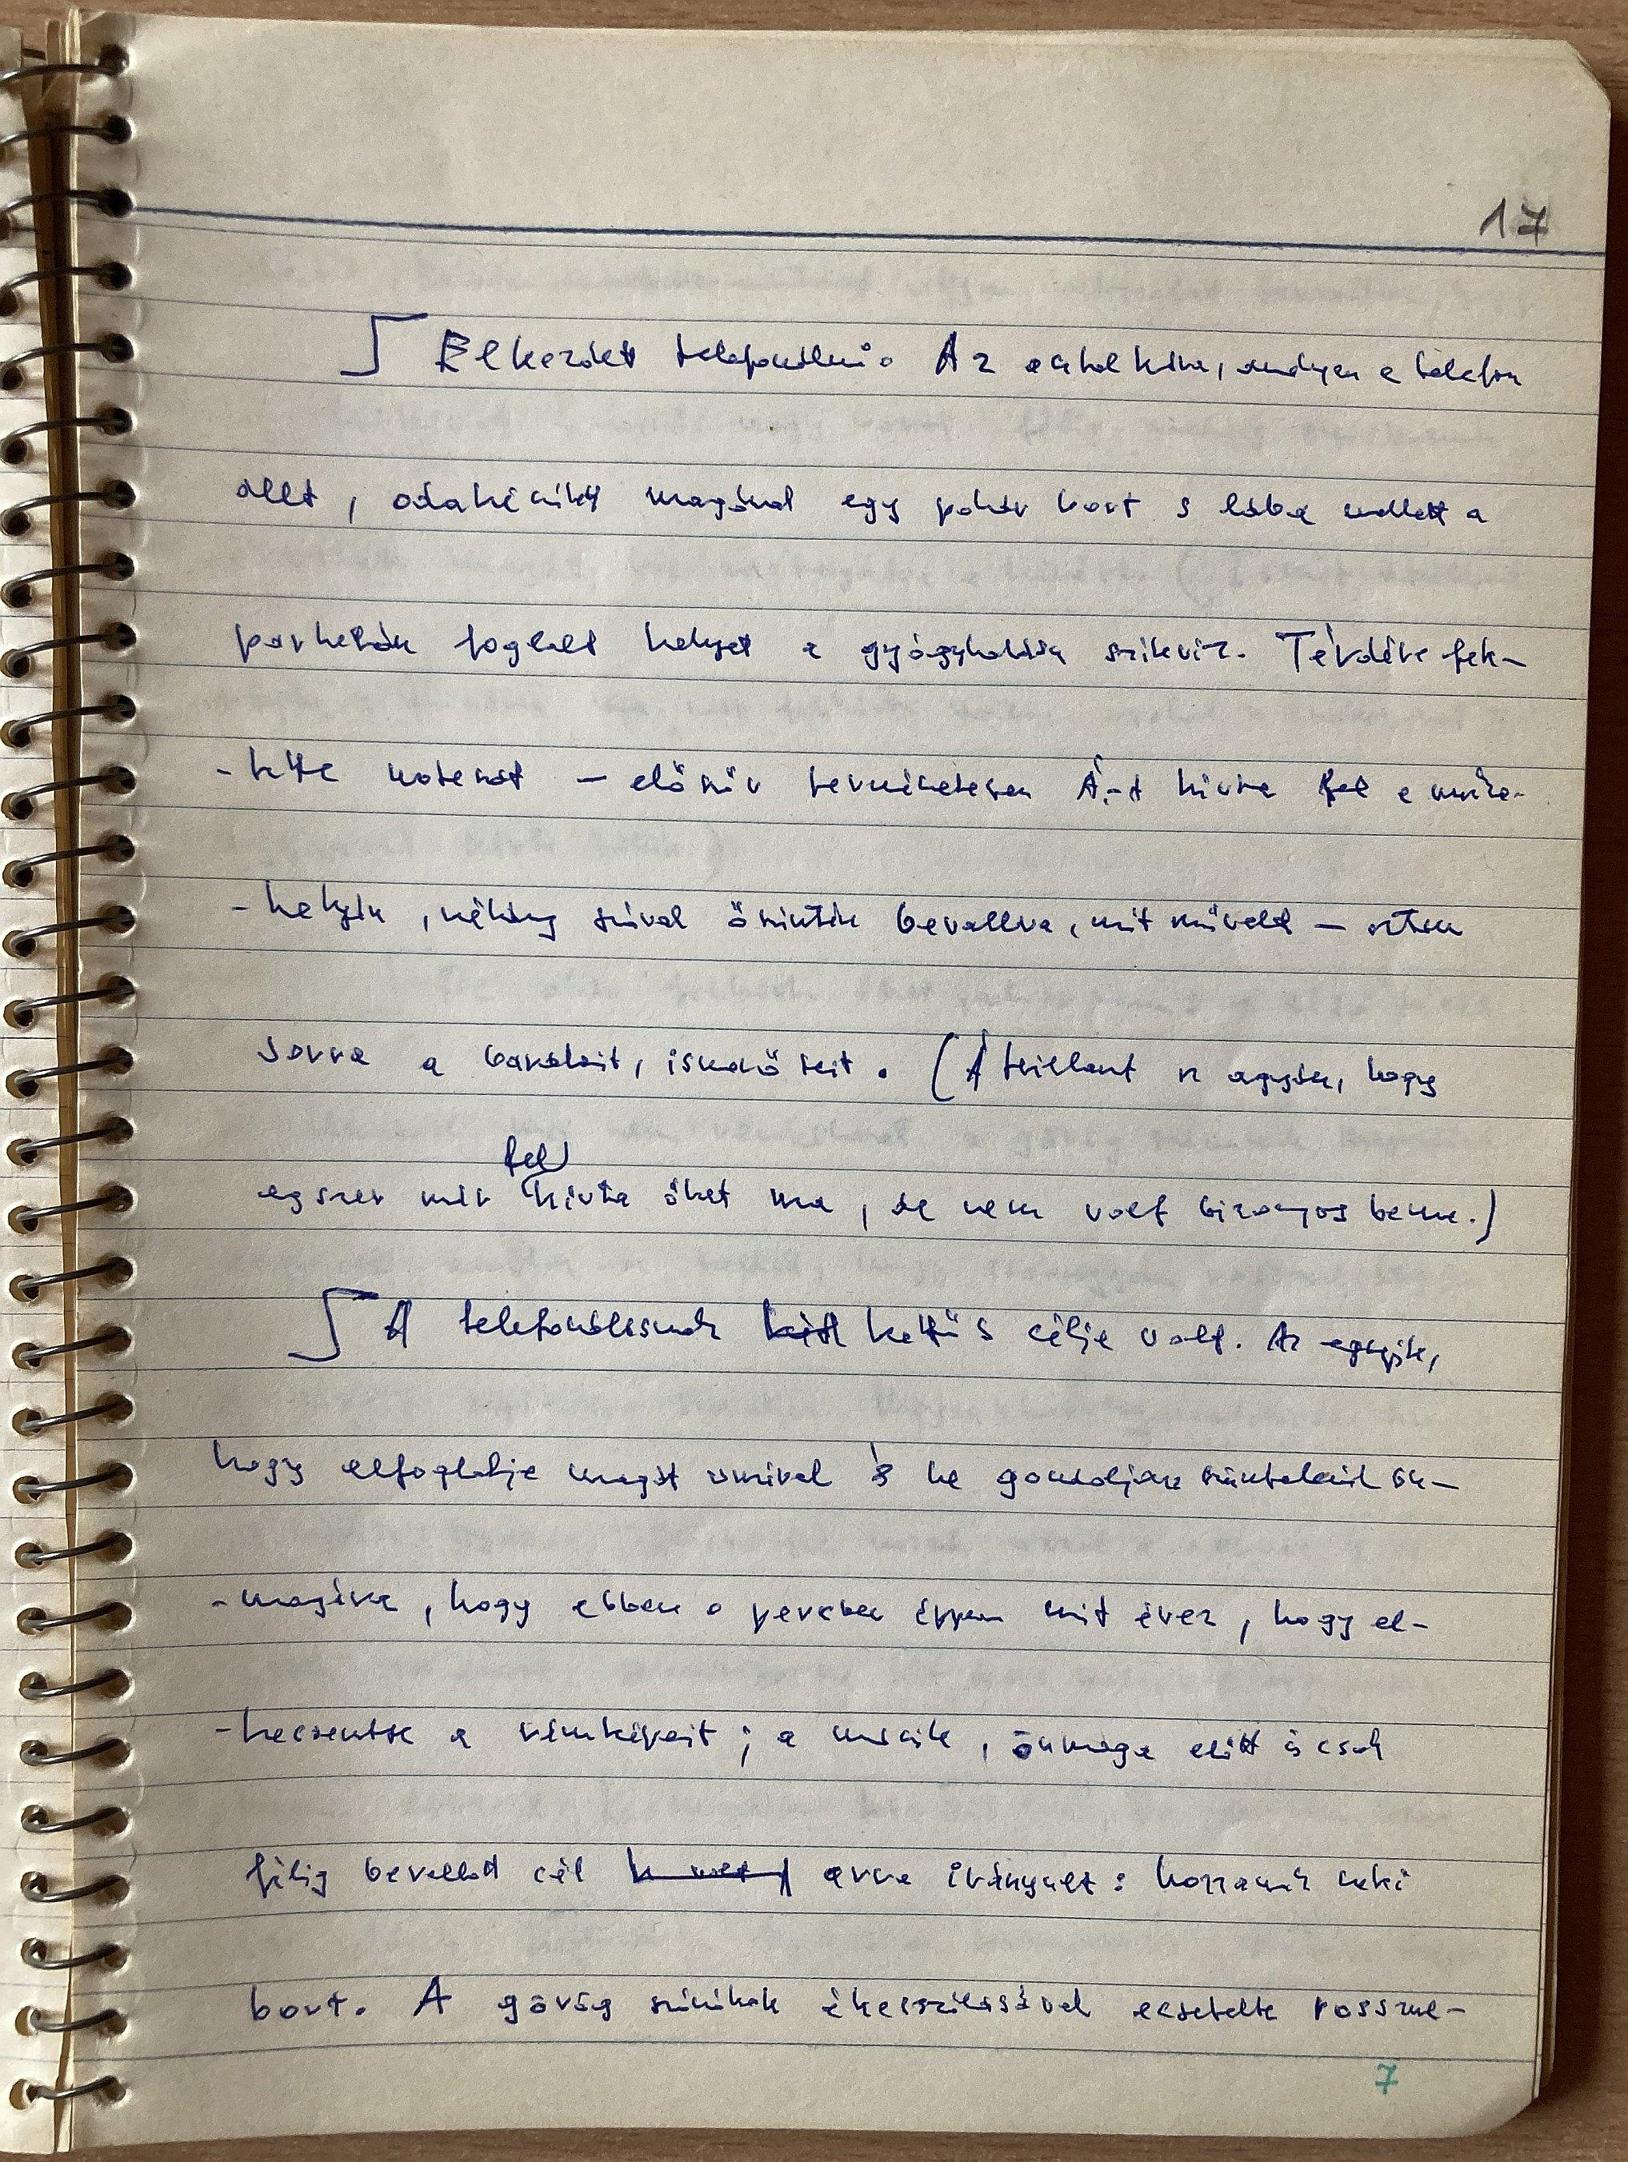 17
Elkezdett telefonálni. Az asztalkára, amelyen a telefon
állt, odakészített magának egy pohár bort s lába mellett a
parketán foglalt helyet a gyógyhatású szikvíz. Térdére fek-
-tette noteszát – először természetesen Á.-t hívta fel a munka-
-helyén, néhány szóval őszintén bevallva, mit művelt – aztán
sorra a barátait, ismerőseit. (Átvillant az agyán, hogy
fel
egyszer már hívta őket ma, de nem volt bizonyos benne.)
A telefonálásnak kettős célja volt. Az egyik,
hogy elfoglalja magát amivel és ne gondoljon szüntelenül ön-
-magára, hogy ebben a percben éppen mit érez, hogy el-
-kergesse a rémképeit; a másik, önmaga előtt is csak
félig bevallott cél arra irányult: hozzanak neki
bort. A görög szónokok ékesszólásával ecsetelte rosszul-
7